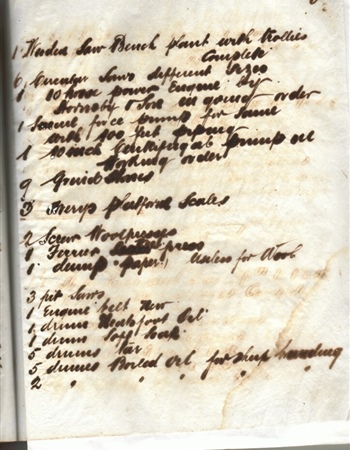 1 Wooden Saw Bench plant with Trollies
Complete
6 Circular Saws different Sizes
1 10 horse power Engine by
Hornsby & Sons in going order
1 Samuel force pump for Same
with 400 feet piping
1 10 inch Centrifugal pump all
Working order
9 Grind Stones
3 Averys platform Scales
2 Screw Woolpresses
1 Ferrier press
1 dump paper Useless for Wool
3 pit Saws
1 Engine belt New
1 drum Neatsfoot Oil
1 drum Soft Soap
5 drums Tar
5 drums Boiled oil for sheep branding
2 " " " "